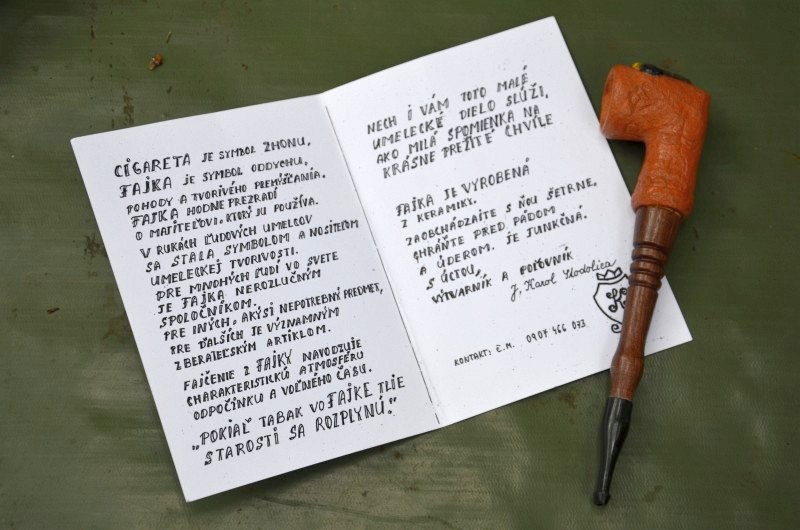 CIGARETA JE SYMBOL ZHONU,
FAJKA JE SYMBOL ODDYCHU,
POHODY A TVORIVÉHO PREMÝŠĽANIA.
FAJKA HODNE PREZRADÍ
O MAJITEĽOVI, KTORÝ JU POUŽÍVA.
V RUKÁCH ĽUDOVÝCH UMELCOV
SA STALA SYMBOLOM A NOSITEĽOM
UMELECKEJ TVORIVOSTI.
PRE MNOHÝCH ĽUDÍ VO SVETE
JE FAJKA NEROZLUČNÝM
SPOLOČNÍKOM.
PRE INÝCH, AKÝSI NEPOTREBNÝ PREDMET,
PRE ĎALŠÍCH JE VÝZNAMNÝM
ZBERATEĽSKÝM ARTIKLOM.
FAJČENIE Z FAJKY NAVODZUJE
CHARAKTERISTICKÚ ATMOSFÉRU
ODPOČINKU A VOĽNÉHO ČASU.
„POKIAĽ TABAK VO FAJKE TLIE
STAROSTI SA ROZPLYNÚ."
NECH I VÁM TOTO MALÉ
UMELECKÉ DIELO SLÚŽI,
AKO MILÁ SPOMIENKA NA
KRÁSNE PREŽITÉ CHVÍLE
FAJKA JE VYROBENÁ
Z KERAMIKY.
ZAOBCHÁDZAJTE S ŇOU ŠETRNE,
CHRÁŇTE PRED PÁDOM
A ÚDEROM. JE FUNKČNÁ.
S ÚCTOU,
VÝTVARNÍK A POĽOVNÍK
J. Karol
KONTAKT: Č.M. 0907 466 073